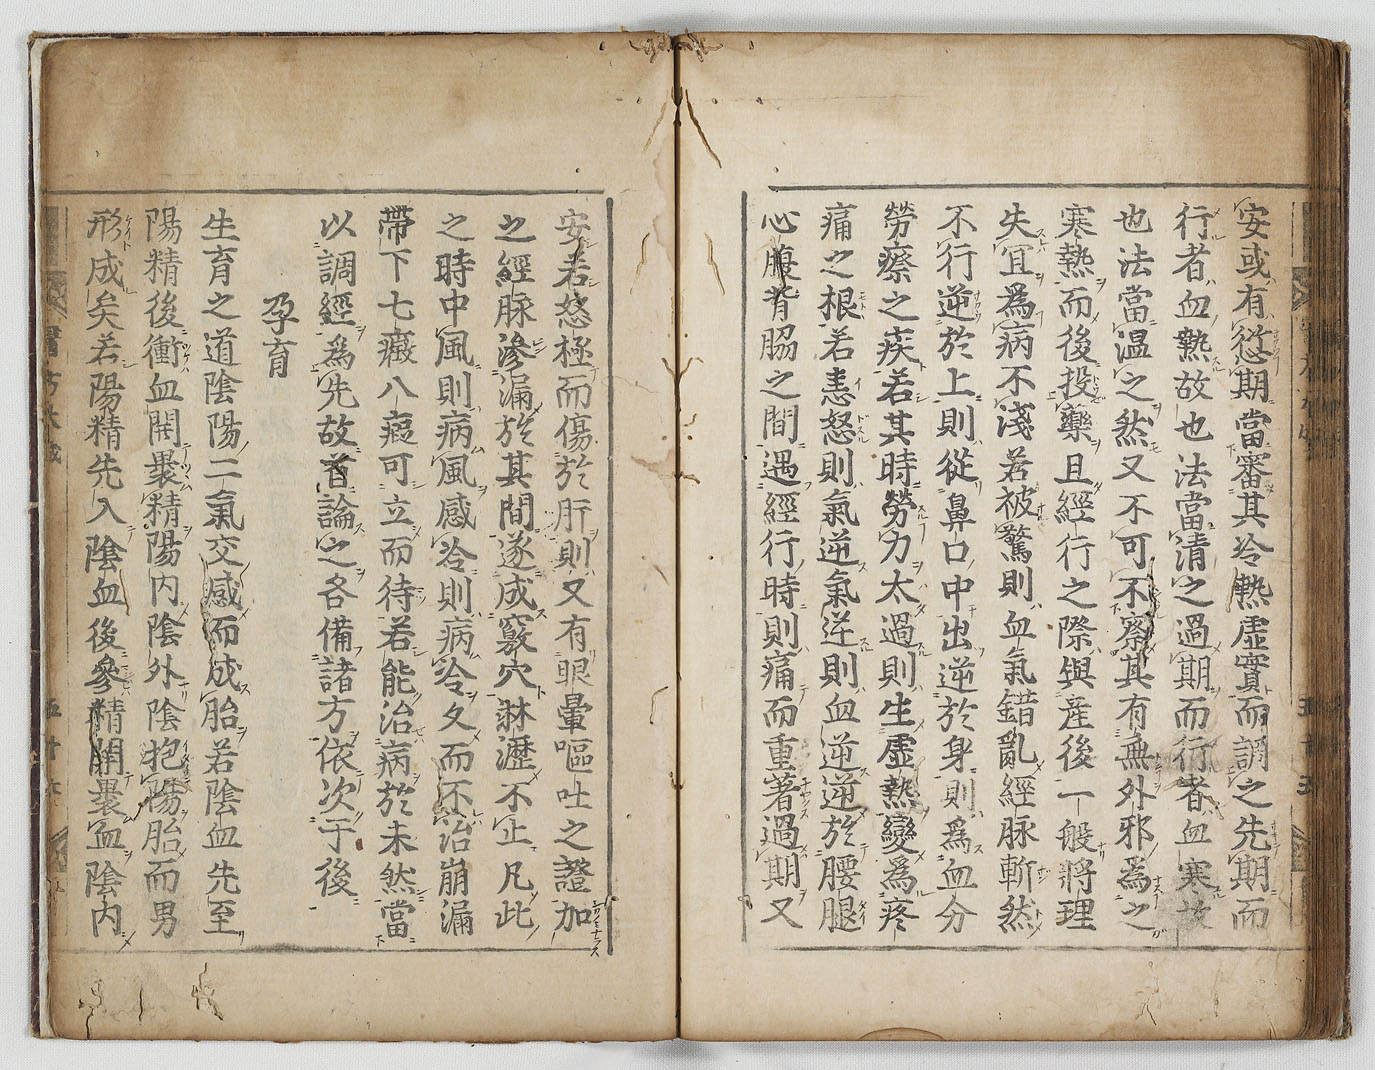 安或有愆期當審其冷熱虛實而調之先期而
行者血熱故也法當清之過期而行者血寒故
也法當温之然又不可不察其有無外邪為之
寒熱而後投藥且經行之際與産後一般將理
失宜為病不淺若被驚則血氣錯亂經脉斬然
不行逆於上則從鼻口中出逆於身則為血分
勞瘵之疾若其時勞力太過則生虛熱變為疼
痛之根若恚怒則氣逆氣逆則血逆逆於腰腿
心腹背脇之間遇經行時則痛而重著過期又
安若怒極而傷於肝則又有眼暈嘔吐之證加
之經脉滲漏於其間遂成竅穴淋瀝不止凡此
之時中風則病風感冷則病冷久而不治崩漏
帶下七癥八瘕可立而待若能治病於未然當
以調經為先故首論之各備諸方依次于後
孕育
生育之道陰陽二氣交感而成胎若陰血先至
陽精後衝血開裹精陽内陰外陰抱陽胎而男
形成矣若陽精先入陰血後參精開裹血陰内